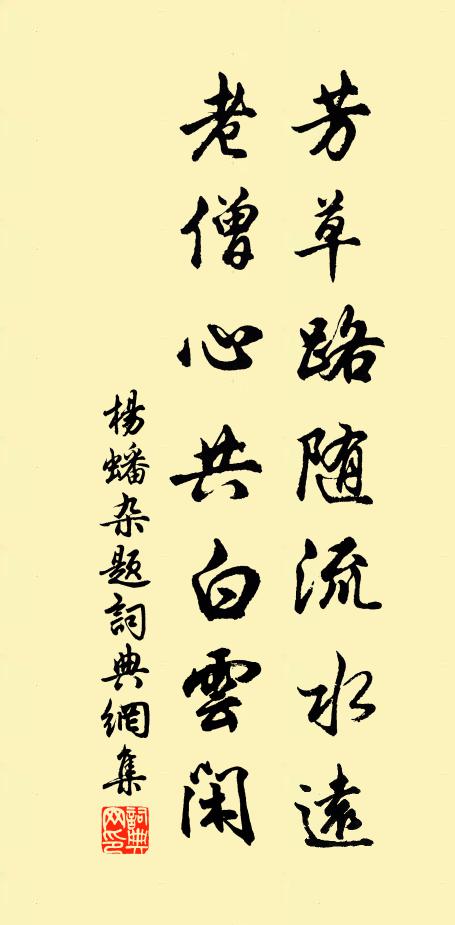 芳草路随流水遠
老僧心共白雲閑
楊蟠杂题詞典網集
詞典网印